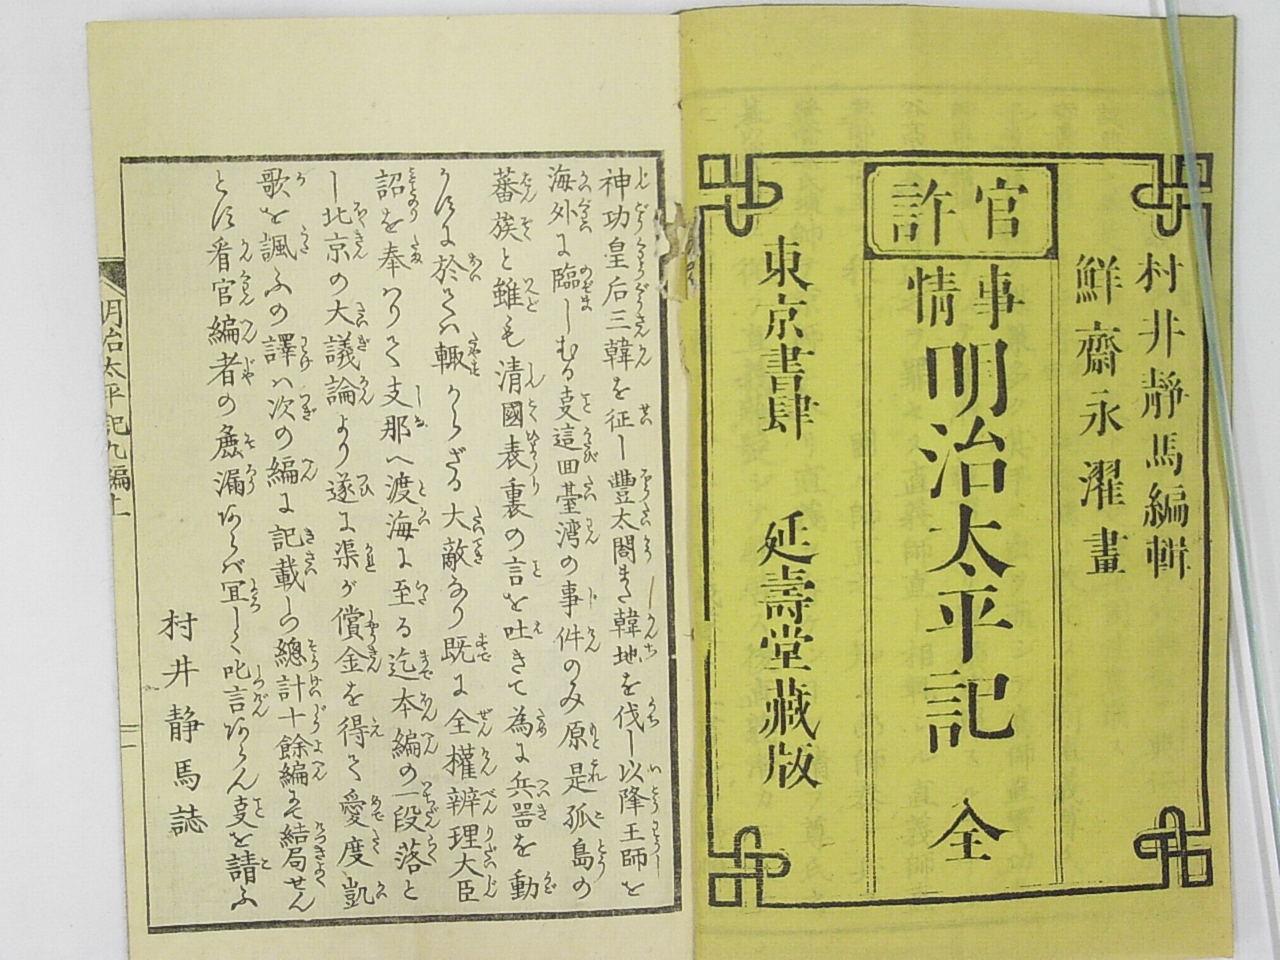 村井靜馬編輯
鮮齋永濯畫
官許
事情
明治太平記 全
東京書肆 延壽堂藏版
神功皇后三韓を征し豐太閤また韓地を伐し以降王師を
海外に臨しむる叓這回臺湾の事件のみ原是孤島の
蕃族と雖も清國表裏の言を吐きて為に兵器を動
かすに於ては輙からざる大敵なり既に全權辨理大臣
詔を奉りて支那へ渡海に至る迄本編の一段落と
し北京の大議論より遂に渠が償金を得て愛度凱
歌を諷ふの譯ハ次の編に記載しつ總計十餘編にて結局せん
とす看官編者の麁漏あらバ宜しく叱言あらん叓を請ふ
村井静馬誌
明治太平記九編上